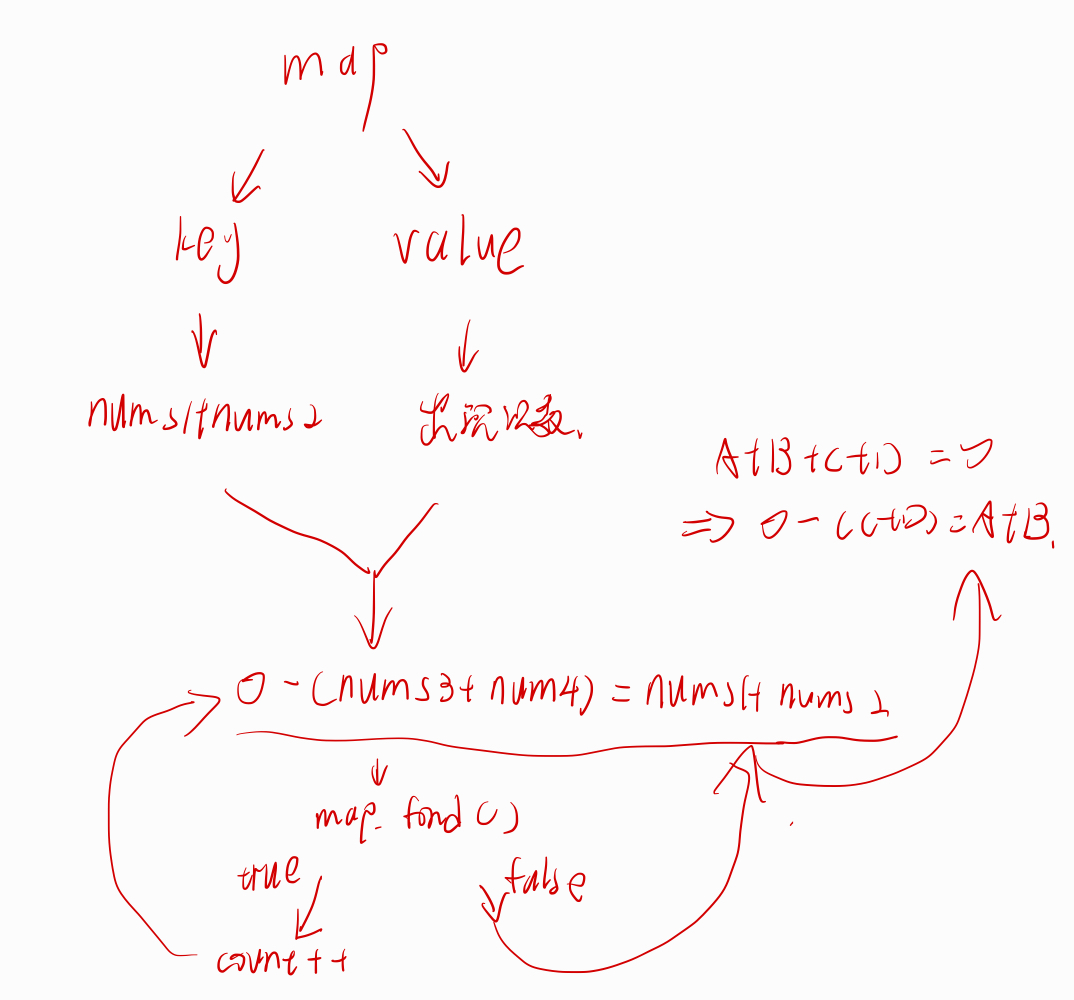 map
key value
nums1+nums2 出现次数.
A+B+C+D = 0
⇒ 0-(C+D)=A+B.
0-(nums3+num4)=nums1+nums2
map. fond()
true false
count++